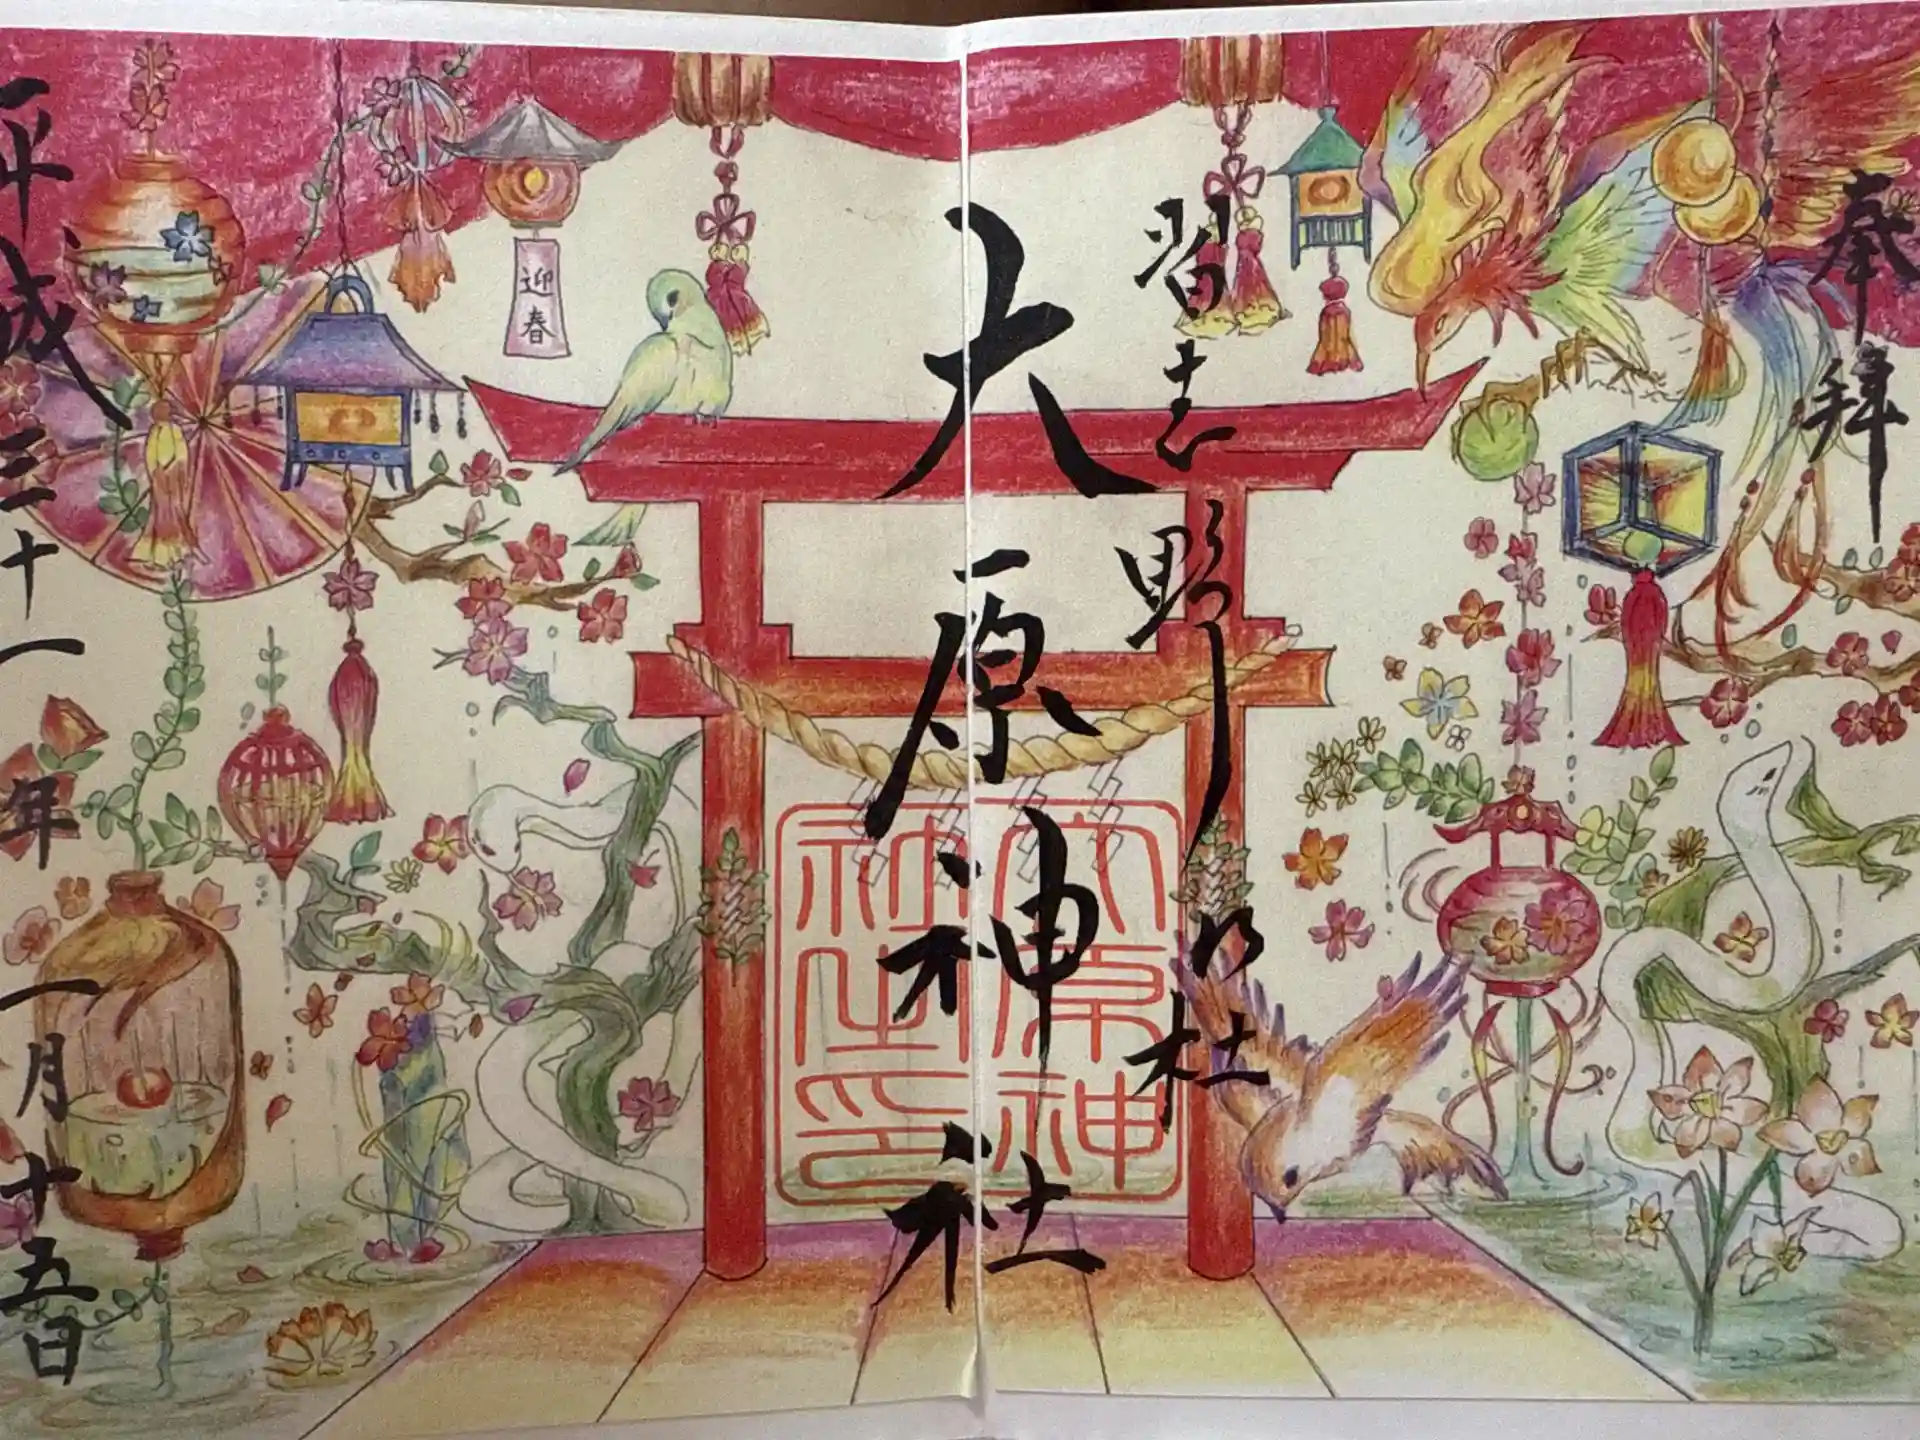 奉拝
習志野
大原神社
大原神
社之印
平成三十一年一月十五日
迎春